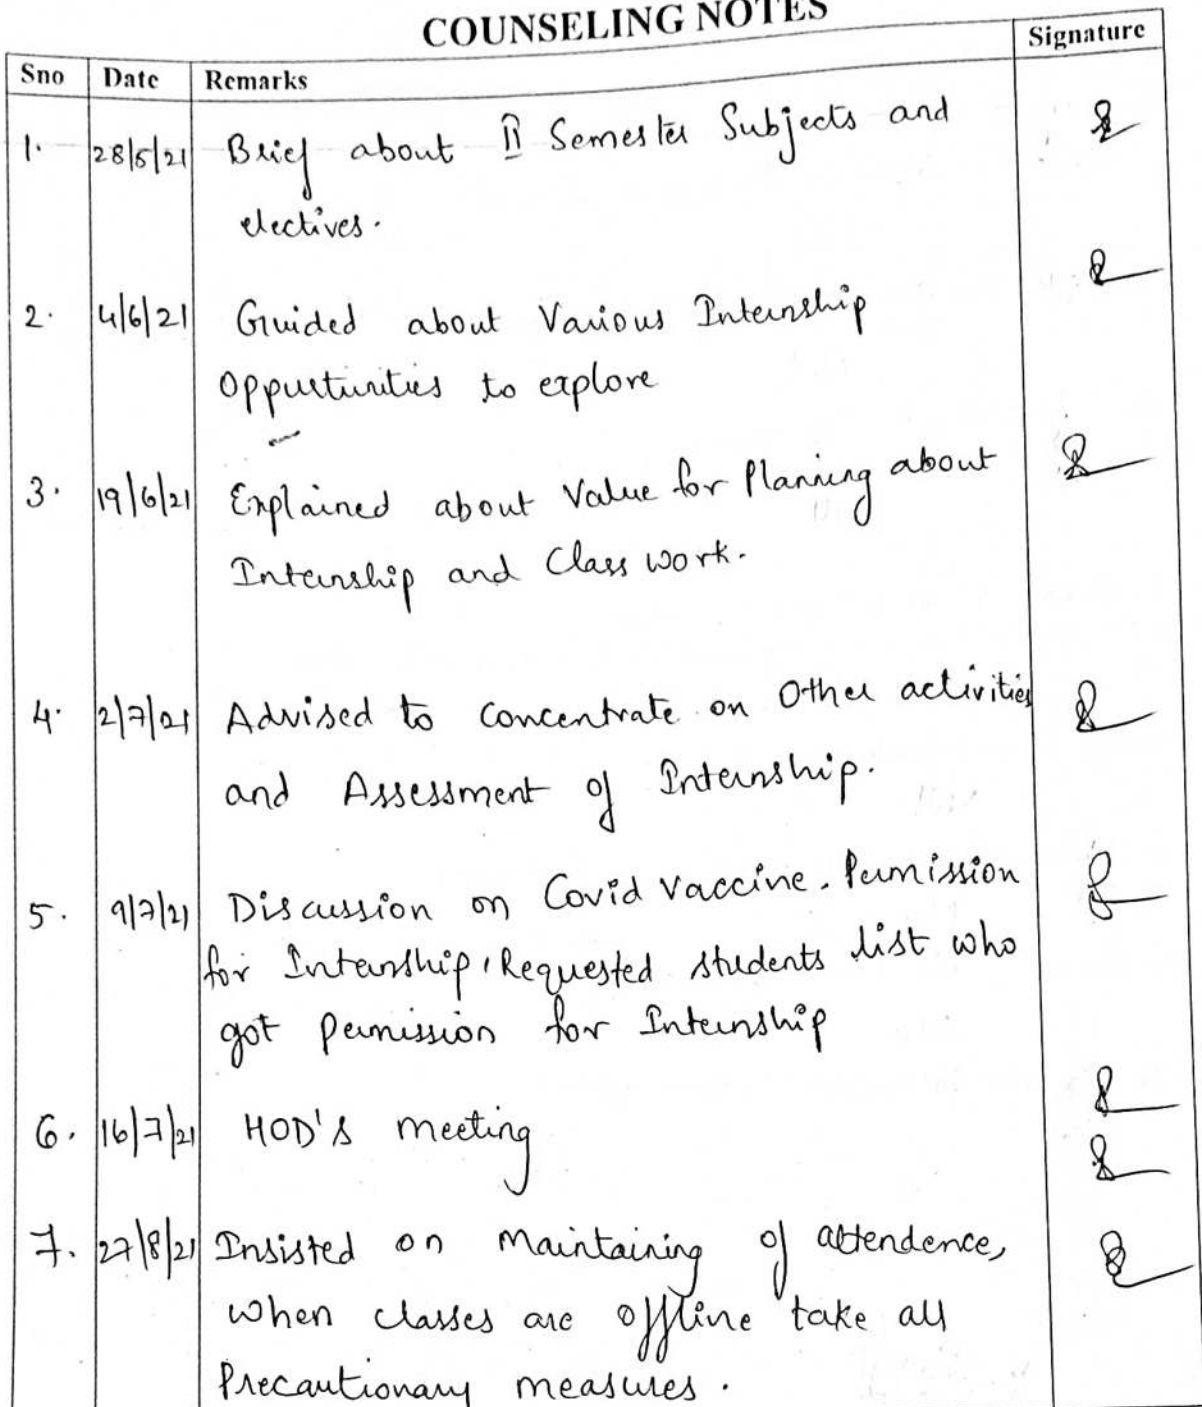 COUNSELING NOTES
Sno Date Remarks Signature
1. 28/5/21 Brief about II Semester Subjects and
electives.
2. 4/6/21 Guided about Various Internship
Oppurtunities to explore
3. 19/6/21 Explained about Value for Planning about
Internship and Class work.
4. 2/7/21 Advised to Concentrate on Other activities
and Assessment of Internship.
5. 9/7/21 Discussion on Covid Vaccine. Permission
for Internship, Requested students list who
got permission for Internship
6. 16/7/21 HOD's meeting
7. 27/8/21 Insisted on Maintaining of attendence,
when classes are offline take all
Precautionary measures.